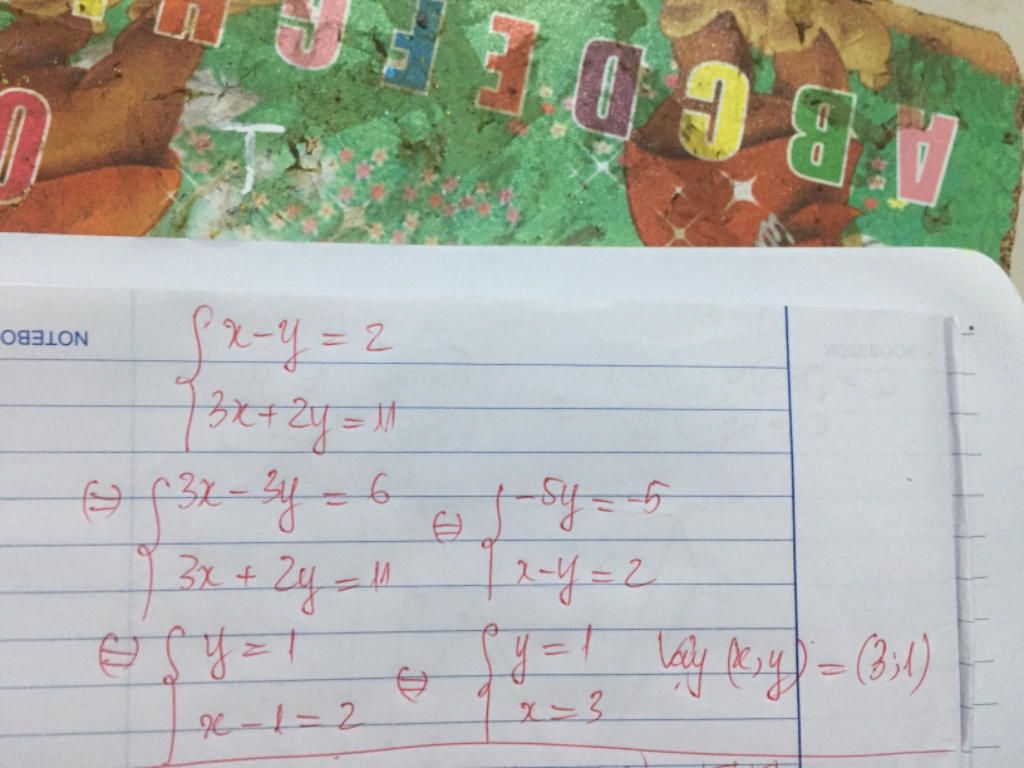 H G F E D C B A
O
T
NOTEBO
{ x - y = 2
3x + 2y = 11
(=) { 3x - 3y = 6
3x + 2y = 11
(=) { -5y = -5
x - y = 2
(=) { y = 1
x - 1 = 2
(=) { y = 1
x = 3
Vậy (x; y) = (3; 1)